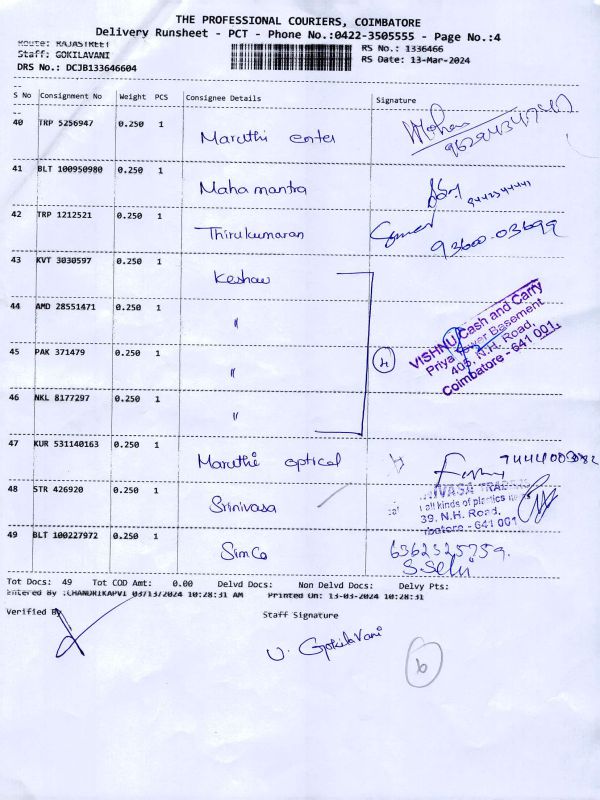 THE PROFESSIONAL COURIERS, COIMBATORE
Delivery Runsheet - PCT - Phone No.:0422-3505555 - Page No.:4
Route: RAJASTREET
Staff: GOKILAVANI
DRS No.: DCJB133646604
RS No.: 1336466
RS Date: 13-Mar-2024
S No Consignment No Weight PCS Consignee Details Signature
40 TRP 5256947 0.250 1 Maruthi enter Mohan
41 BLT 100950980 0.250 1 Mahamantra
42 TRP 1212521 0.250 1 Thirukumaran 93600-03699
43 KVT 3030597 0.250 1 Keshav
44 AMD 28551471 0.250 1 "
45 PAK 371479 0.250 1 "
46 NKL 8177297 0.250 1 "
4
VISHNU Cash and Carry
Priya Tower Basement
405, N.H. Road,
Coimbatore - 641 001.
47 KUR 531140163 0.250 1 Maruthi optical
48 STR 426920 0.250 1 Srinivasa
all kinds of plastics
39, N.H. Road.
641 001
49 BLT 100227972 0.250 1 Simco 6362525759.
S. Selvi
Tot Docs: 49 Tot COD Amt: 0.00 Delvd Docs: Non Delvd Docs: Delvy Pts:
Entered By :CHANDRIKAPV1 03/13/2024 10:28:31 AM Printed On: 13-03-2024 10:28:31
Verified By
Staff Signature
V. Gokilavani
6